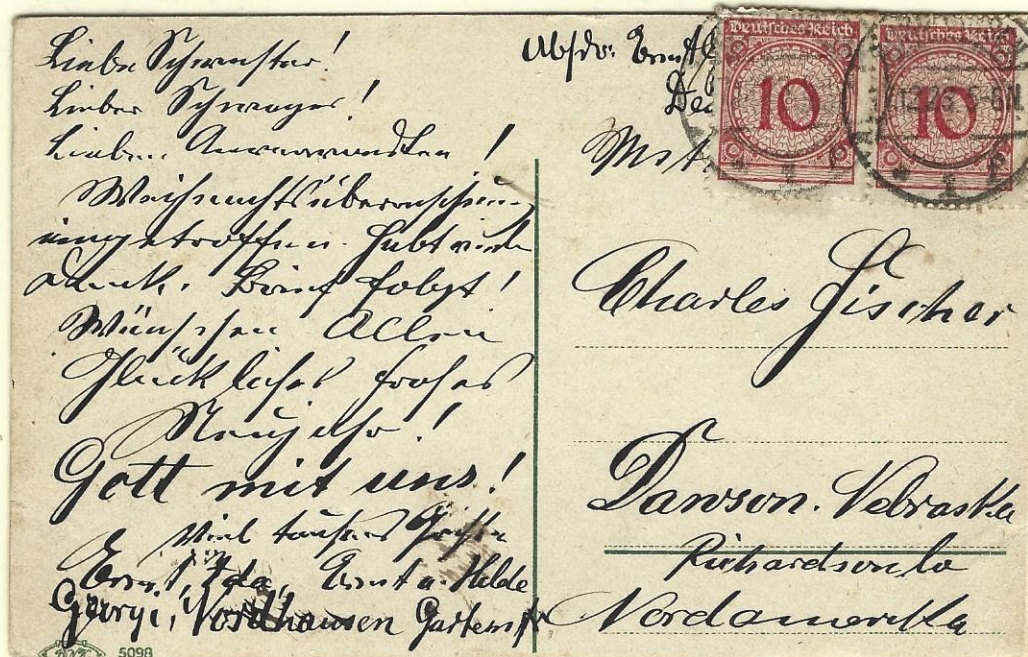 Liebe Schwester!
Lieber Schwager!
Lieben Anverwandten!
Weihnachtsüberraschung
eingetroffen. Habt viele
Dank. Brief folgt!
Wünschen Allen
Glückliches frohes
Neujahr!
Gott mit uns!
Viel tausend Grüße
Ernst, Ida, Ernst u. Hilde
Georgi, Nordhausen Gartenstr
5098
Absdr: Ernst
Deutsches Reich
10
Deutsches Reich
10
Charles Fischer
Dawson. Nebraska
Richardson Co
Nordamerika